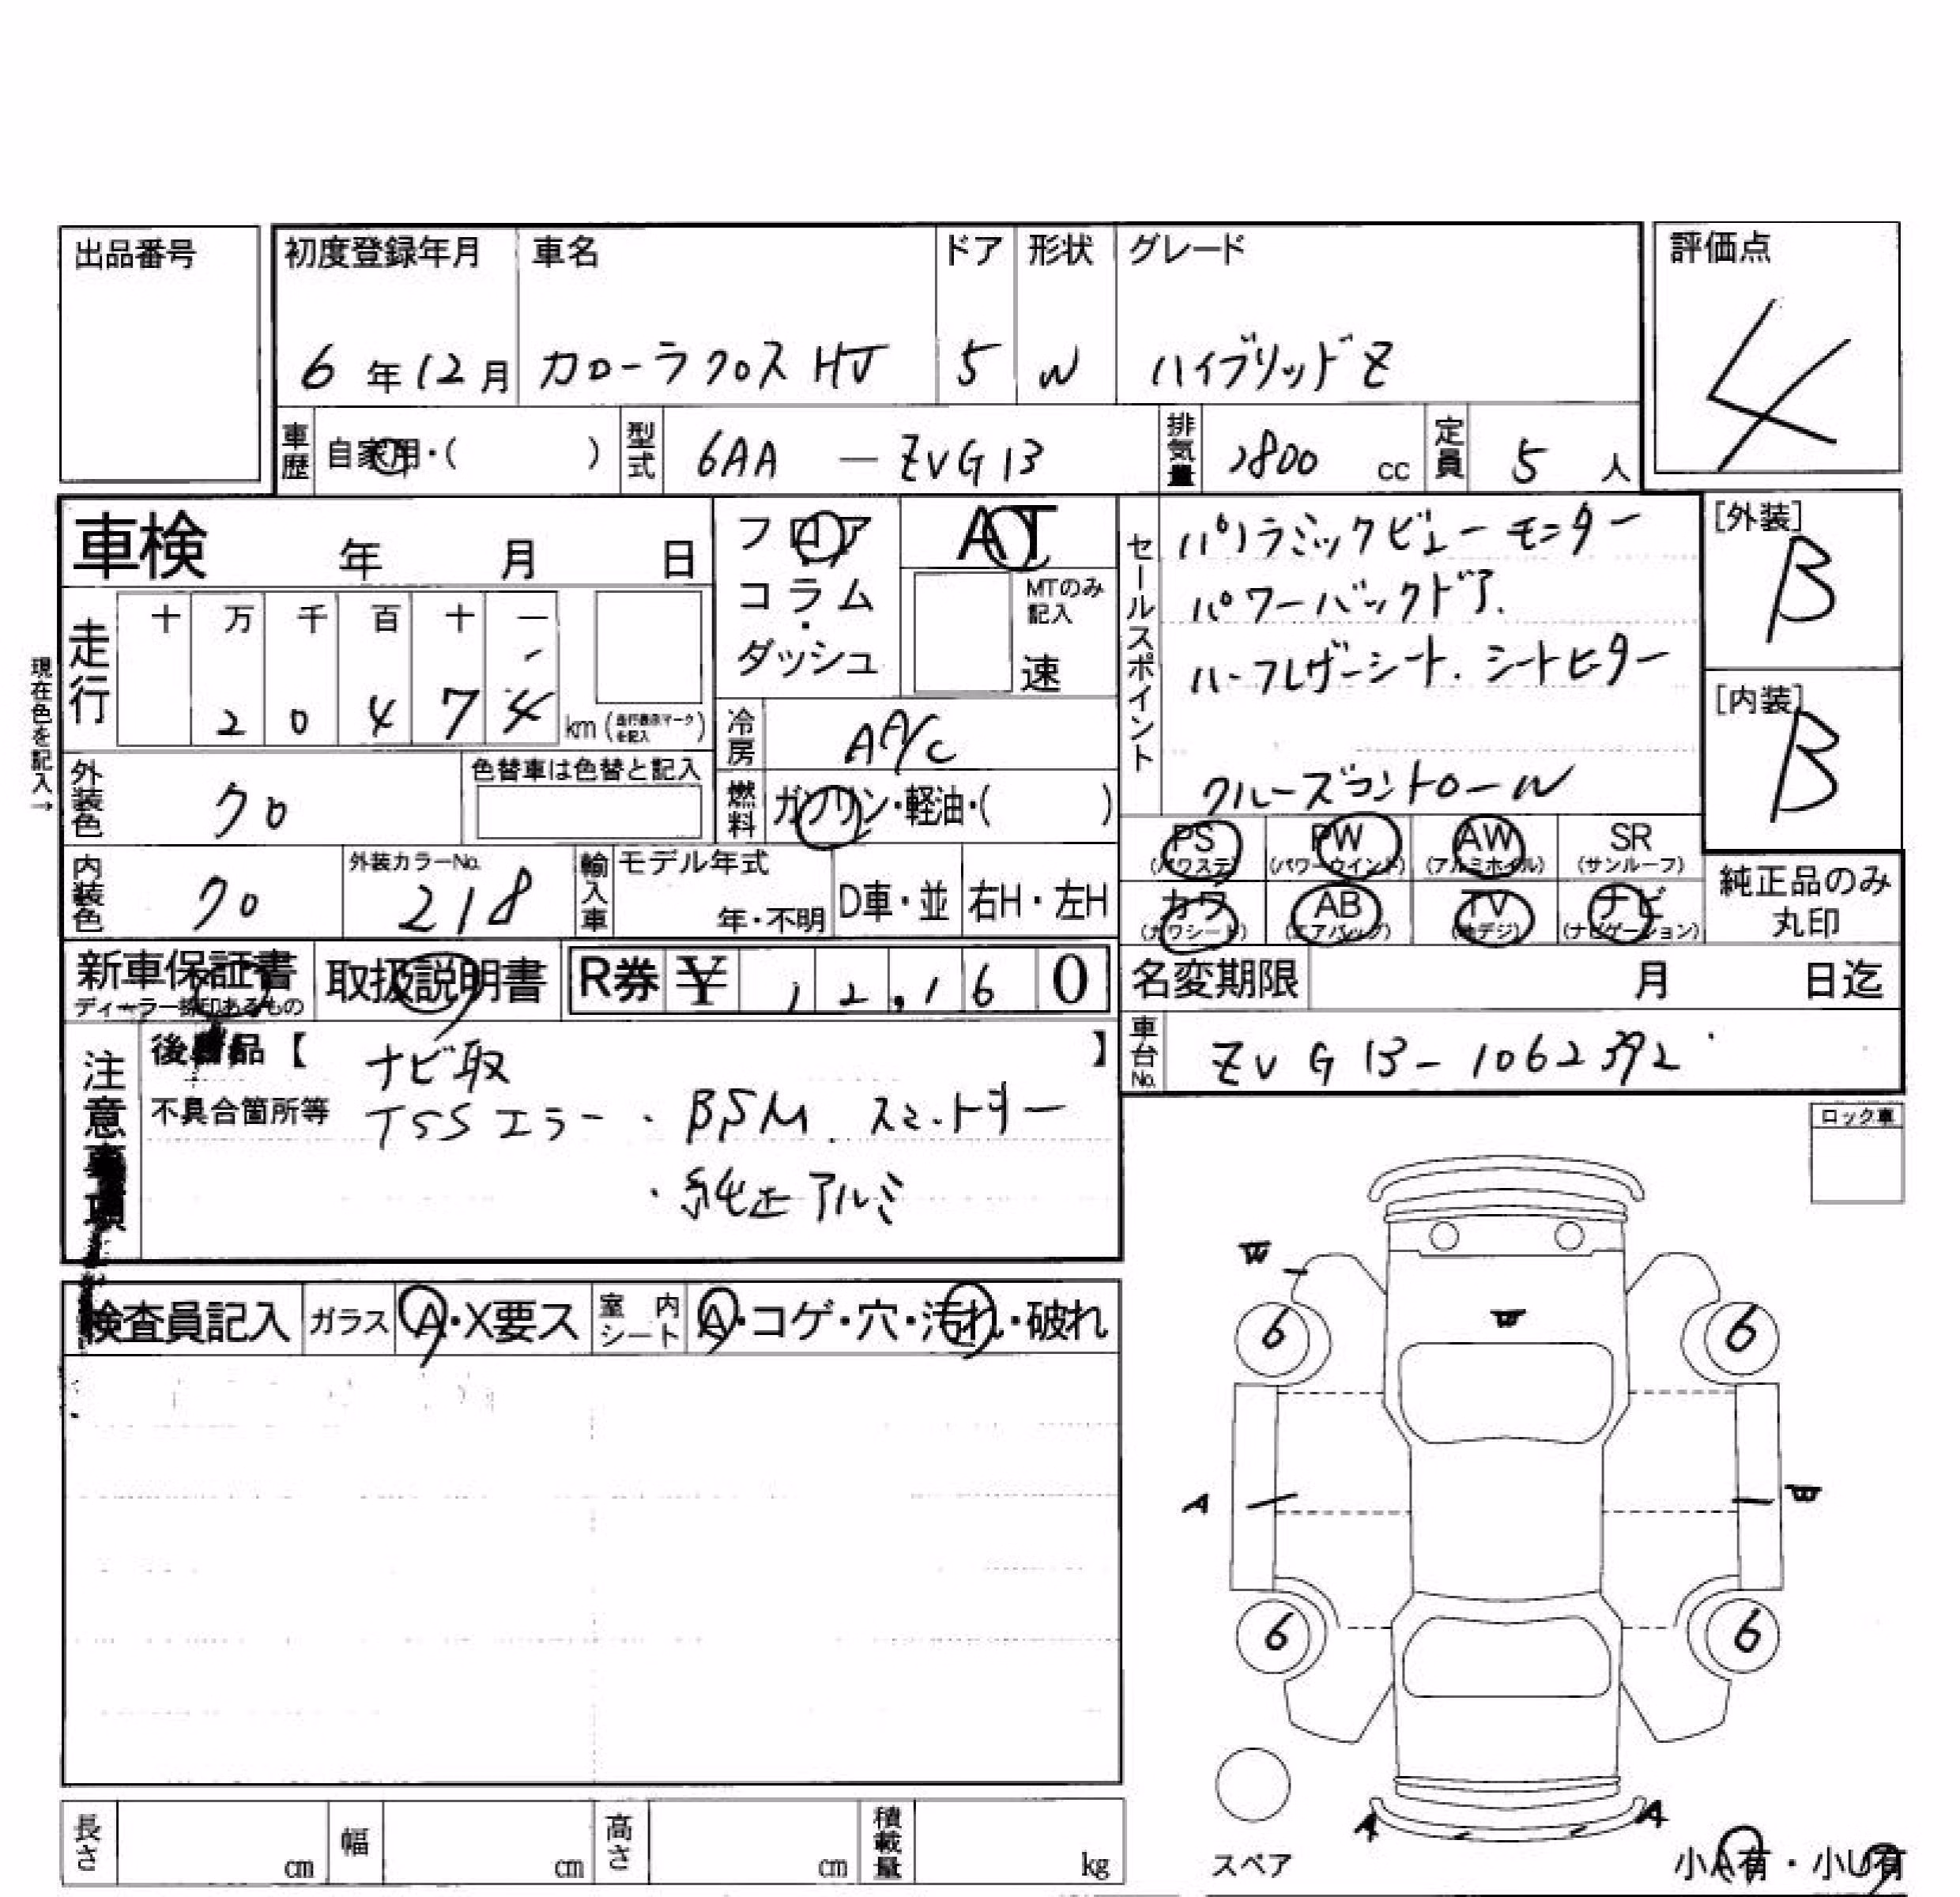 出品番号
初度登録年月 車名 ドア 形状 グレード 評価点
6年12月 カローラクロス HV 5 W ハイブリッドZ 4
車歴 自家用・( ) 型式 6AA - ZVG13 排気量 1800 cc 定員 5 人
車検 年 月 日
フロア・コラム・ダッシュ
AT MTのみ記入 速
現在色を記入→
走行 十 万 千 百 十 一
2 0 4 7 km (走行表示マークを記入)
冷房 AA/C
燃料 ガソリン・軽油・( )
外装色 クロ 色替車は色替と記入
内装色 クロ 外装カラーNo. 218
輸入車 モデル年式 年・不明 D車・並 右H・左H
セールスポイント
パノラミックビューモニター
パワーバックドア.
ハーフレザーシート. シートヒーター
クルーズコントロール
[外装] B
[内装] B
PS (パワステ) PW (パワーウインド) AW (アルミホイル) SR (サンルーフ)
カワ (カワシート) AB (エアバッグ) TV (地デジ) ナビ (ナビゲーション)
純正品のみ丸印
新車保証書 ディーラー捺印あるもの 取扱説明書 R券 ¥ 12,160
名変期限 月 日迄
車台No. ZVG13-1062392
注意事項
後着品【 ナビ取 】
不具合箇所等 TSSエラー ・BSM. スマートキー
・純正アルミ
ロック車
検査員記入 ガラス A・X要ス 室内シート A・コゲ・穴・汚れ・破れ
W
W
6 6
A W
6 6
A A
スペア 小A有・小U有
長さ cm 幅 cm 高さ cm 積載量 kg